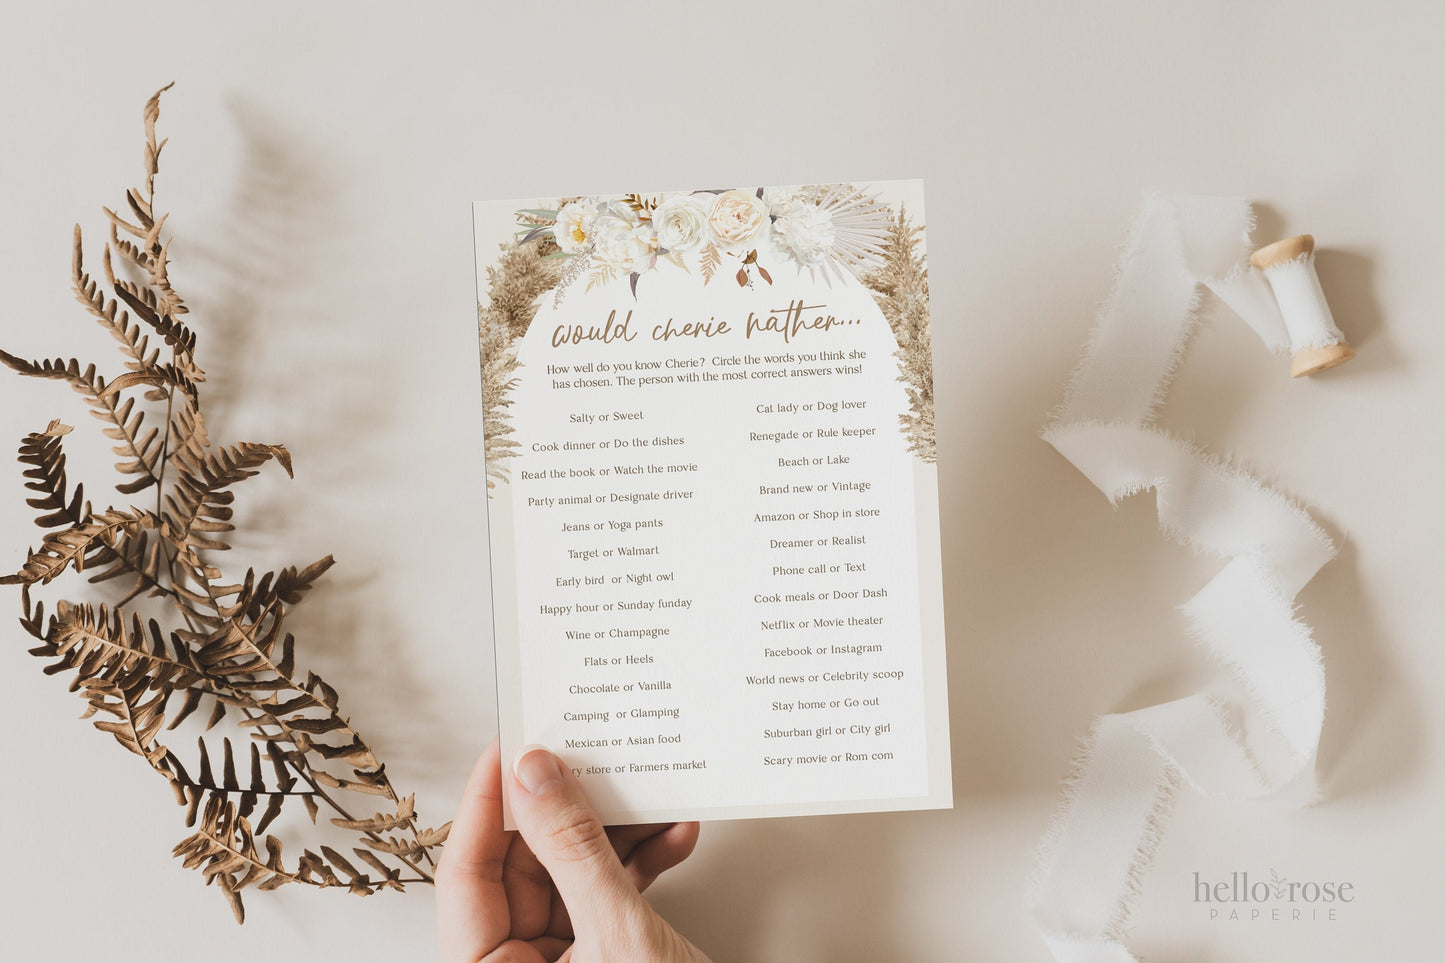 would cherie rather...
How well do you know Cherie? Circle the words you think she
has chosen. The person with the most correct answers wins!
Salty or Sweet
Cook dinner or Do the dishes
Read the book or Watch the movie
Party animal or Designate driver
Jeans or Yoga pants
Target or Walmart
Early bird or Night owl
Happy hour or Sunday funday
Wine or Champagne
Flats or Heels
Chocolate or Vanilla
Camping or Glamping
Mexican or Asian food
ry store or Farmers market
Cat lady or Dog lover
Renegade or Rule keeper
Beach or Lake
Brand new or Vintage
Amazon or Shop in store
Dreamer or Realist
Phone call or Text
Cook meals or Door Dash
Netflix or Movie theater
Facebook or Instagram
World news or Celebrity scoop
Stay home or Go out
Suburban girl or City girl
Scary movie or Rom com
hello rose
PAPERIE